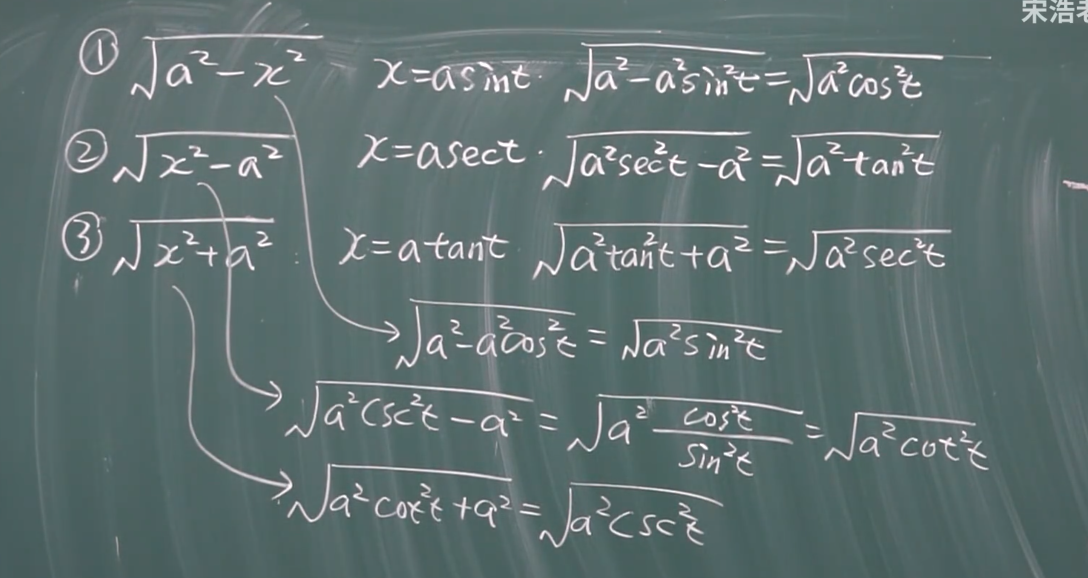 宋浩老
① √(a²-x²) x=asint. √(a²-a²sin²t)=√(a²cos²t)
② √(x²-a²) x=asect. √(a²sec²t-a²)=√(a²tan²t)
③ √(x²+a²) : x=atant √(a²tan²t+a²)=√(a²sec²t)
→√(a²-a²cos²t)=√(a²sin²t)
→√(a²csc²t-a²)=√(a² cos²t/sin²t)=√(a²cot²t)
→√(a²cot²t+a²)=√(a²csc²t)